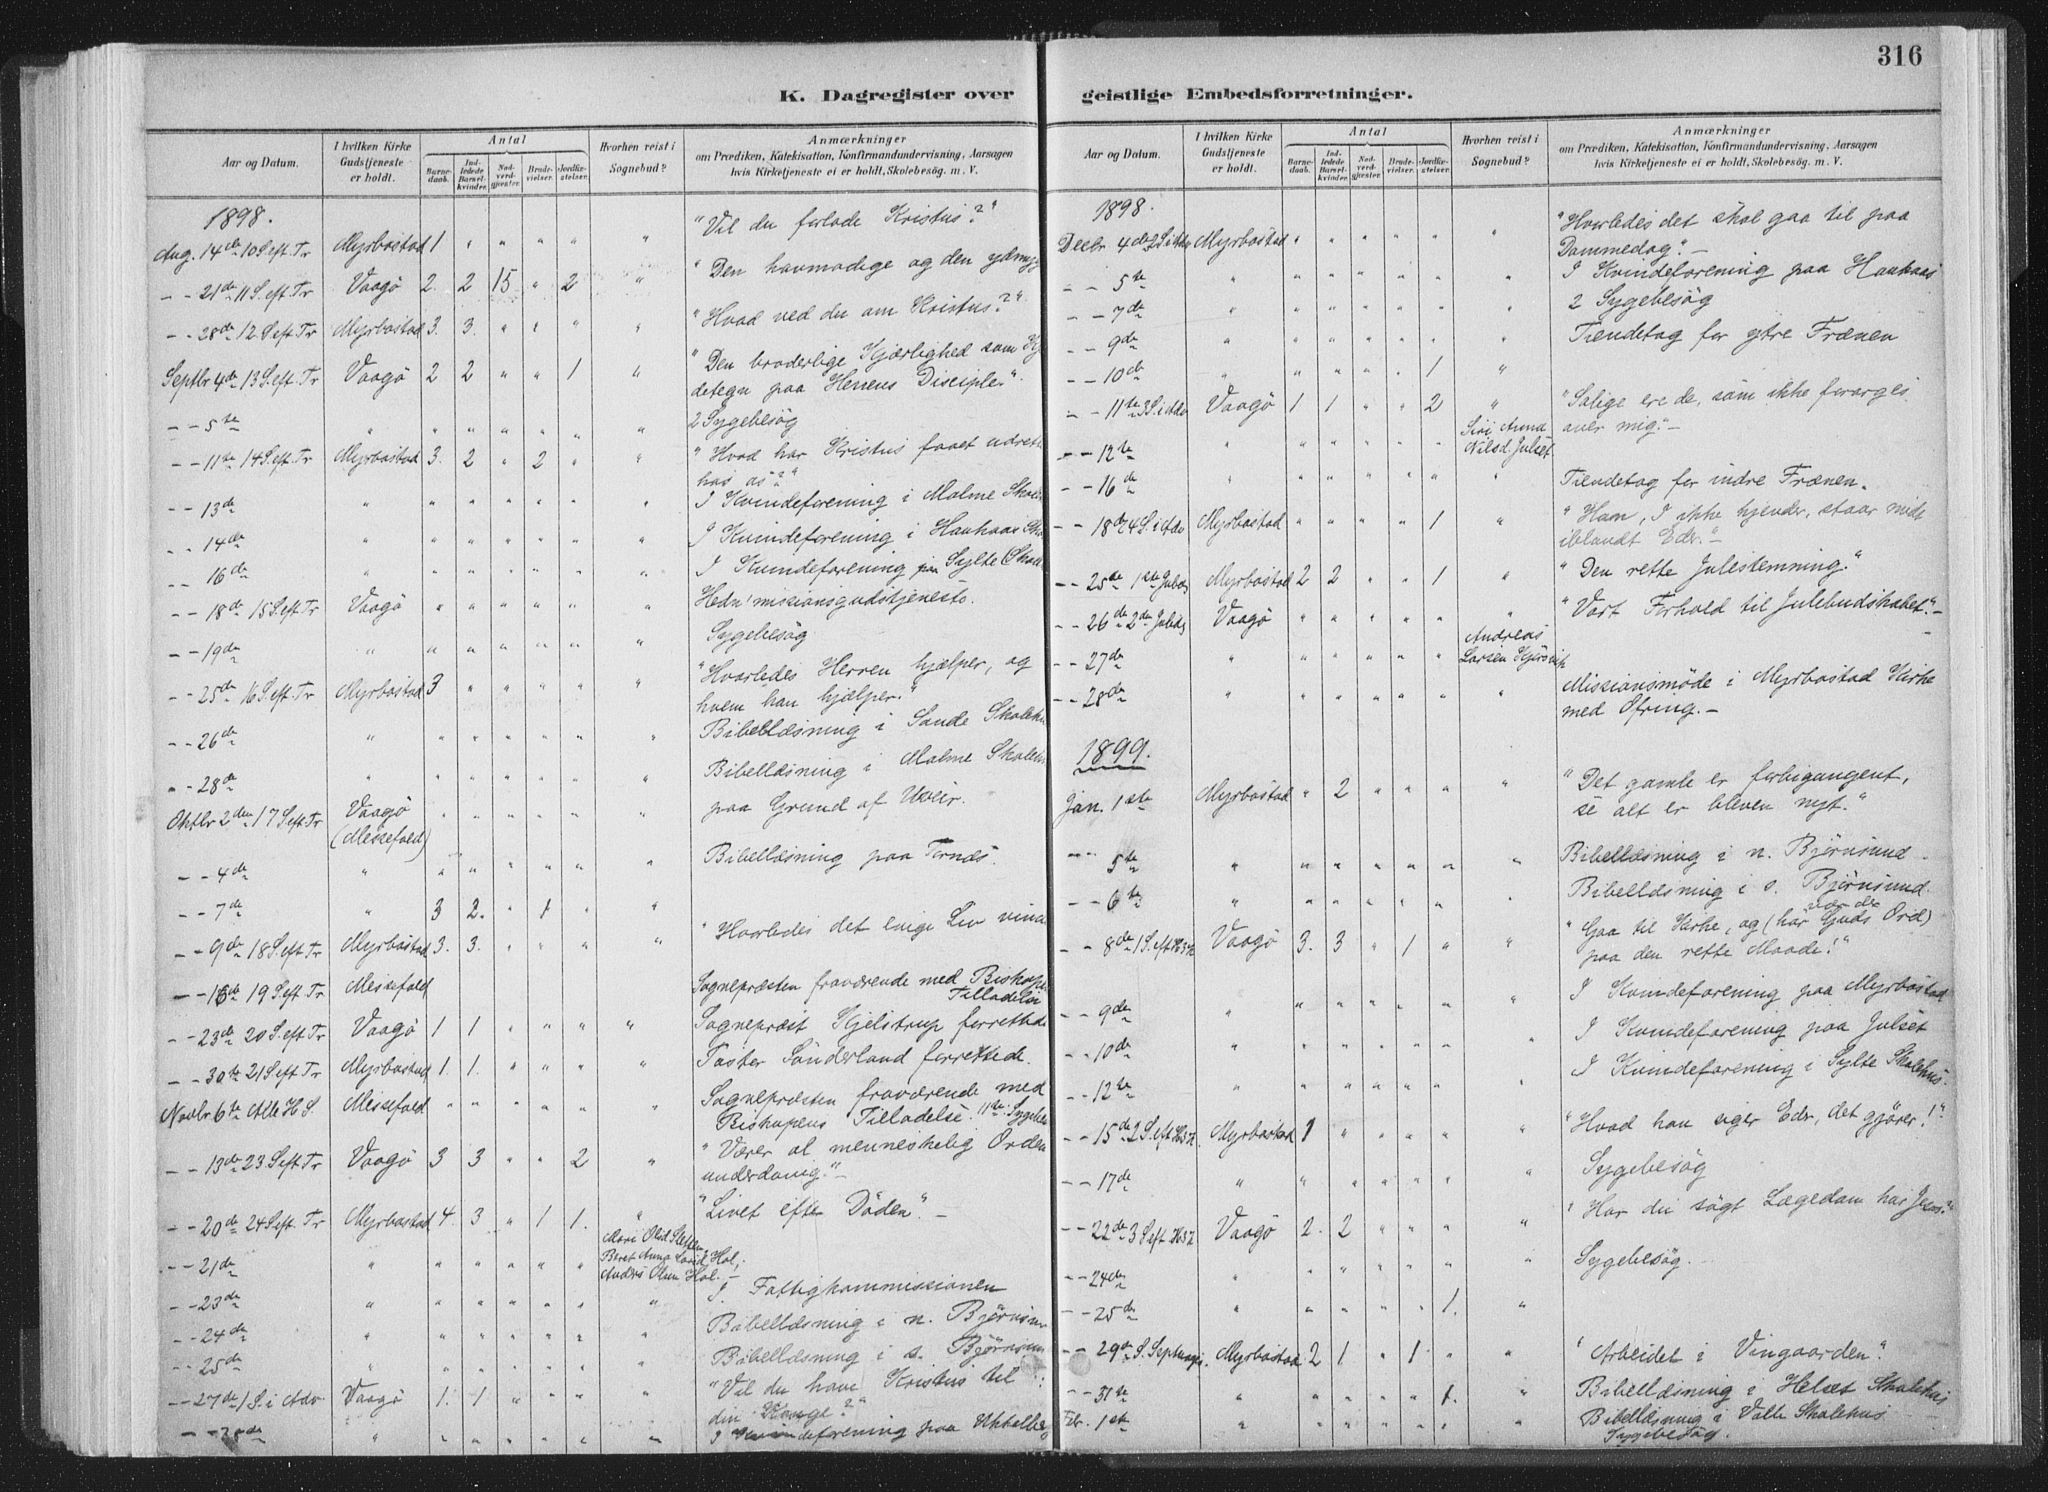 316
K. Dagregister over geistlige Embedsforretninger.
Aar og Datum.
I hvilken Kirke Gudstjeneste er holdt.
Antal
Barnedaab.
Indledede Barselkvinder.
Nadverdgjester.
Brudevielser.
Jordfæstelser.
Hvorhen reist i Sognebud?
Anmærkninger
om Prædiken, Katekisation, Konfirmandundervisning, Aarsagen
hvis Kirketjeneste ei er holdt, Skolebesøg. m. V.
1898.
Aug. 14de 10 S. eft. Tr Myrbostad 1 " " " " " "Vil du forlade Kristus?"
- - 21de 11 S. eft. Tr Vaagö 2. 2 15 " 2 " "Den hovmodige og den ydmyg
- - 28de 12 S. eft Tr Myrbostad 3. 3. " " " " "Hvad ved du om Kristus?"
Septbr 4de 13 S. eft. Tr Vaagö 2 2 " " 1 " "Den broderlige Kjærlighed som Kj
detegn paa Herrens Disciple".
- - 5te " " " " " " " 2 Sygebesög
- - 11te 14 S. eft Tr Myrbostad 3. 2 " 2 " " "Hvad har Kristus faaet udrett
hos os?"
- - 13de " " " " " " " I Kvindeforening i Malme Skoleh
- - 14de " " " " " " " I Kvindeforening i Haukaas Sko
- - 16de " " " " " " " I Kvindeforening paa Sylte Skole
- - 18de 15 S. eft. Tr Vaagö " " " " " " Hedn! missionsgudstjeneste.
- - 19de " " " " " " " Sygebesög
- - 25de 16 S. eft Tr Myrbostad 3 " " " " " "Hvorledes Herren hjælper, og
hvem han hjælper."
- - 26de " " " " " " Bibellæsning i Sande Skolehu
- - 28de " " " " " " " Bibellæsning i Malme Skolehu
Oktbr 2den 17 S. eft. Tr Vaagö " " " " " " paa Grund af Uveir.
(Messefald)
- - 4de " " " " " " " Bibellæsning paa Ternes.
- - 7de " 3 2. " 1 " "
- - 9de 18 S. eft Tr Myrbostad 3. 3. " " " " "Hvorledes det evige Liv vind
- - 16de 19 S. eft. Tr Messefald Sognepræsten fraværende med Biskope
Tilladelse
- - 23de 20 S. eft Tr Vaagö 1 1 " " " " Sognepræst Kjelstrup forrettede
- - 30te 21 S eft Tr Myrbostad 1. 1. " " " " Pastor Sönderland forrettede.
Novbr 6te Alle H S. Messefald " " " " " " Sognepræsten fraværende med
Biskopens Tilladelse. 11te: Sygebes
- - 13de 23 S eft Tr Vaagö 3 3 " " 2 " "Værer al menneskelig Orden
underdanig."-
- - 20de 24 S eft. Tr Myrbostad 4. 3 " 1 1. " "Livet efter Döden". -
- - 21de " " " " " " Beret Anna Hol, Anders Olsen Hol.-
- - 23de " " " " " " " I Fattigkommissionen
- - 24de " " " " " " " Bibellæsning i n. Björnsun
- - 25de " " " " " " " Bibellæsning i s. Björnsun
- - 27de 1 S. i Adv. Vaagö 1. 1 " " " " "Vil du have Kristus til
din Konge?"
" " " " " " " I Kvindeforening paa
Aar og Datum.
I hvilken Kirke Gudstjeneste er holdt.
Antal
Barnedaab.
Indledede Barselkvinder.
Nadverdgjester.
Brudevielser.
Jordfæstelser.
Hvorhen reist i Sognebud?
Anmærkninger
om Prædiken, Katekisation, Konfirmandundervisning, Aarsagen
hvis Kirketjeneste ei er holdt, Skolebesög. m. V.
1898.
Decbr 4de 2 S. i Adv Myrbostad " " " " " " "Hvorledes det skal gaa til paa
Dommedag". -
- - 5te " " " " " " " I Kvindeforening paa Haukaas
- - 7de " " " " " " " 2 Sygebesög
- - 9de " " " " " " " Tiendetag for ytre Frænen
- - 10de " " " " " 1 "
- - 11te 3 S. i Adv Vaagö 1 1 " " 2 " "Salige ere de, som ikke forarges
over mig". -
- - 12te " " " " " " Siri Anna Nilsd. Julset
- - 16de " " " " " " " Tiendetag for indre Frænen.
- - 18de 4 S. i Adv Myrbostad " " " " 1 " "Ham, I ikke kjender, staar midt
iblandt Eder." -
- - 25de 1ste Juledg Myrbostad 2 2 " " 1 " "Den rette Julestemning."
- - 26de 2den Juledg Vaagö " " " " " " "Vort Forhold til Julebudskabet". -
- - 27de " " " " " " Andreas Larsen
- - 28de " " " " " " " Missionsmöde i Myrbostad Kirke
med Ofring. -
1899.
Jan. 1ste Myrbostad " 2 " " " " "Det gamle er forbigangent,
se alt er bleven nyt."
- - 5te " " " " " " " Bibellæsning i n. Björnsund.
- - 6te " " " " " " " Bibellæsning i s. Björnsund.
- - 8de 1 S. eft H3K Vaagö 3. 3 " 1 " " "Gaa til Kirke, og (hör Guds Ord)
paa den rette Maade!"
- - 9de " " " " " " " I Kvindeforening paa Myrbostad
- - 10de " " " " " " " I Kvindeforening paa Julset
- - 12te " " " " " " " I Kvindeforening i Sylte Skolehus.
- - 15de 2 S. eft H3K. Myrbostad 1 " " " " " "Hvad han siger Eder, det gjörer!"
- - 17de " " " " " " " Sygebesög
- - 22de 3 S eft H3K Vaagö 2. 2 " " " " "Har du sögt Lægedom hos Jesus?"
- - 24de " " " " " " Sygebesög.
- - 25de " " " " " 1. "
- - 29de S. Septuages. Myrbostad 2 1 " 1 " " "Arbeidet i Vingaarden".
- - 31te " " " " " 1. " Bibellæsning i Helset Skolehus
Febr. 1ste " " " " " " " Bibellæsning i Valle Skolehus
Sygebesög.